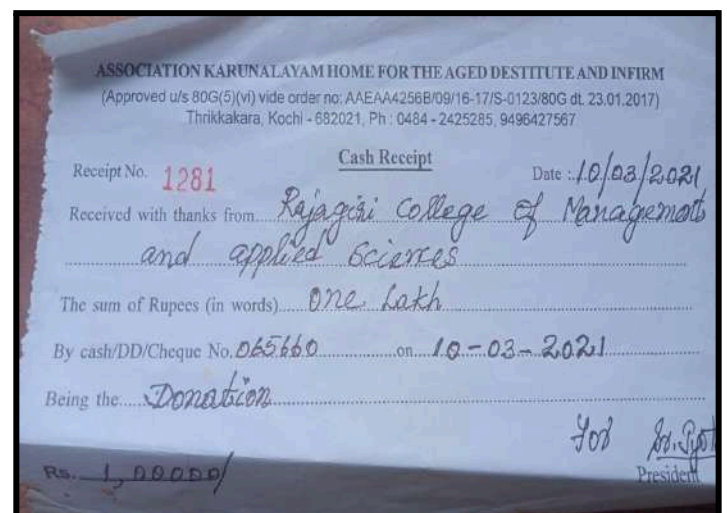 ASSOCIATION KARUNALAYAM HOME FOR THE AGED DESTITUTE AND INFIRM
(Approved u/s 80G(5)(vi) vide order no: AAEAA4256B/09/16-17/S-0123/80G dt. 23.01.2017)
Thrikkakara, Kochi - 682021, Ph : 0484 - 2425285, 9496427567
Cash Receipt
Receipt No. 1281 Date : 10/03/2021
Received with thanks from Rajagiri College of Management
and applied sciences
The sum of Rupees (in words) One Lakh
By cash/DD/Cheque No. 065660 on 10-03-2021
Being the Donation
For Sr.
President
Rs. 1,00000/